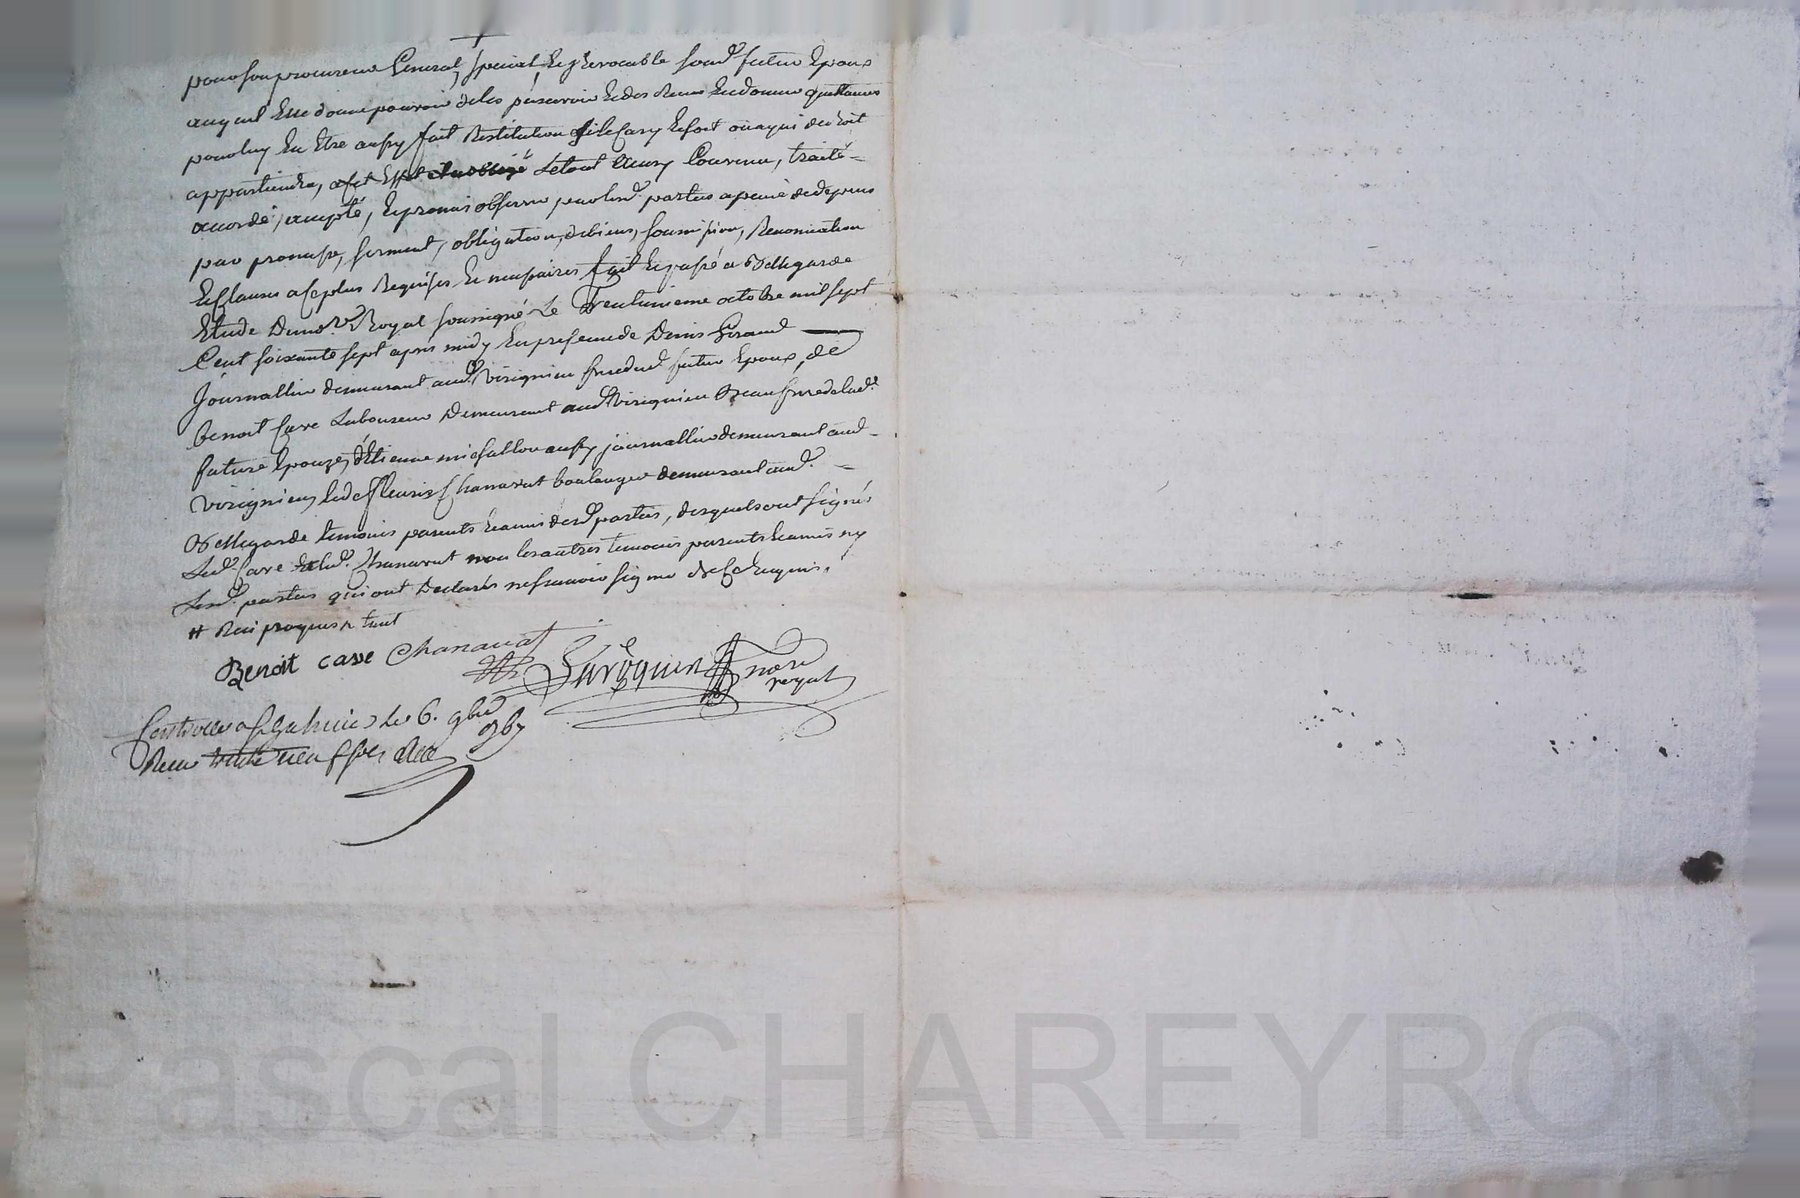 pour son procureur General, special & irrevocable soud. futur Epoux
auquel Elle donne pouvoir de les percevoir & des Reçus En donner quittances
pour luy En Etre aussy fait Restitution sy le cas y Echoit ou a qui de droit
appartiendra, a cet Effet Le tout Ainsy Convenu, traité
accordé, accepté, & promis observer par lesd. parties a peine de depens
par promesse, serment, obligation, de biens, soumission, Renonciation
& clauses a ce plus Requises & necessaires fait & passé a Bellegarde
Etude Du no.re Royal soussigné Le Trentunieme octobre mil sept
Cent soixante sept apres midy En presence de Denis Giraud
Journallier demeurant aud. Virignieu dud. futur Epoux, de
benoit Case Laboureur Demeurant aud Virignieu de lad.
future Epouze, d'Etienne aussy journallier demeurant aud
Virignieu, & de fleuris Chanavat boulanger demeurant aud.
Bellegarde temoins parents & amis desd. parties, desquels ont signés
Led. Case & led. Chanavat non les autres temoins parents & amis ny
Lesd. parties qui ont Declarés ne sçavoir signer de ce Enquis.
# 
Benoit casse Chanavat
no.re royal
Controllé a le 6. 9bre 1767
Reçu neuf sols
Pascal CHAREYRON